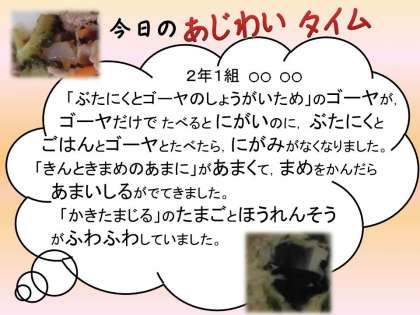 今日の あじわい タイム
2年1組 ○○ ○○
「ぶたにくとゴーヤのしょうがいため」のゴーヤが,
ゴーヤだけで たべると にがいのに, ぶたにくと
ごはんとゴーヤとたべたら, にがみがなくなりました。
「きんときまめのあまに」があまくて, まめをかんだら
あまいしるがでてきました。
「かきたまじる」のたまごとほうれんそう
がふわふわしていました。